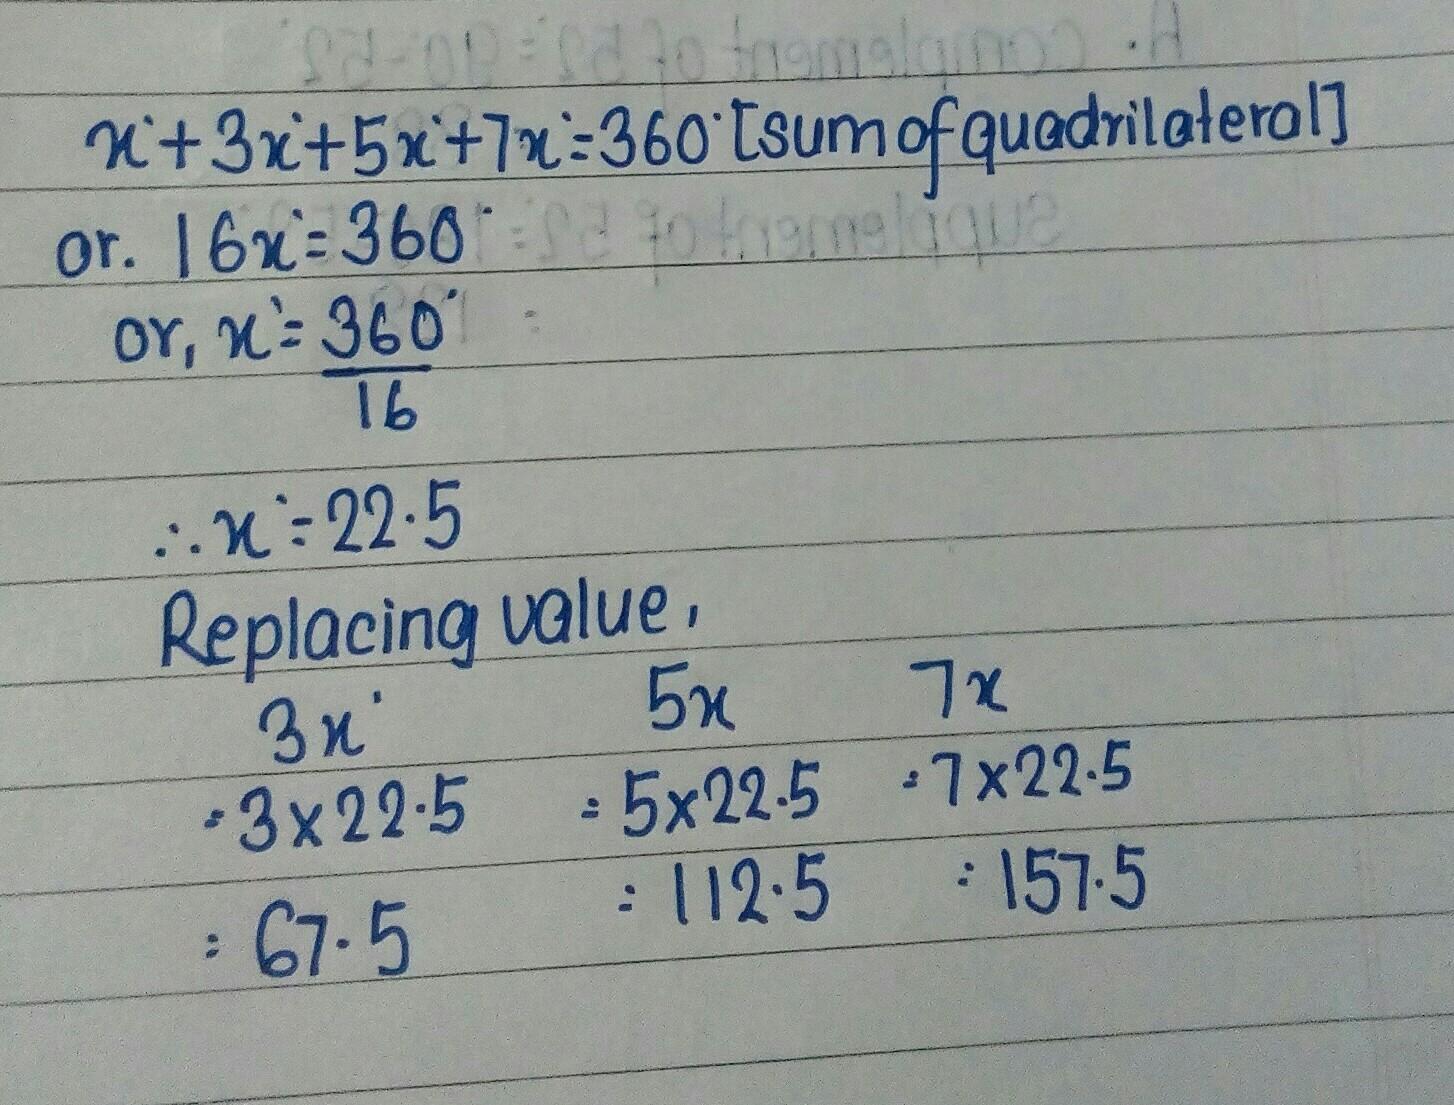 x°+3x°+5x°+7x°=360° [sum of quadrilateral]
or. 16x°=360°
or, x°=360°
16
∴x°=22.5
Replacing value,
3x° 5x 7x
=3×22.5 =5×22.5 =7×22.5
=67.5 =112.5 =157.5